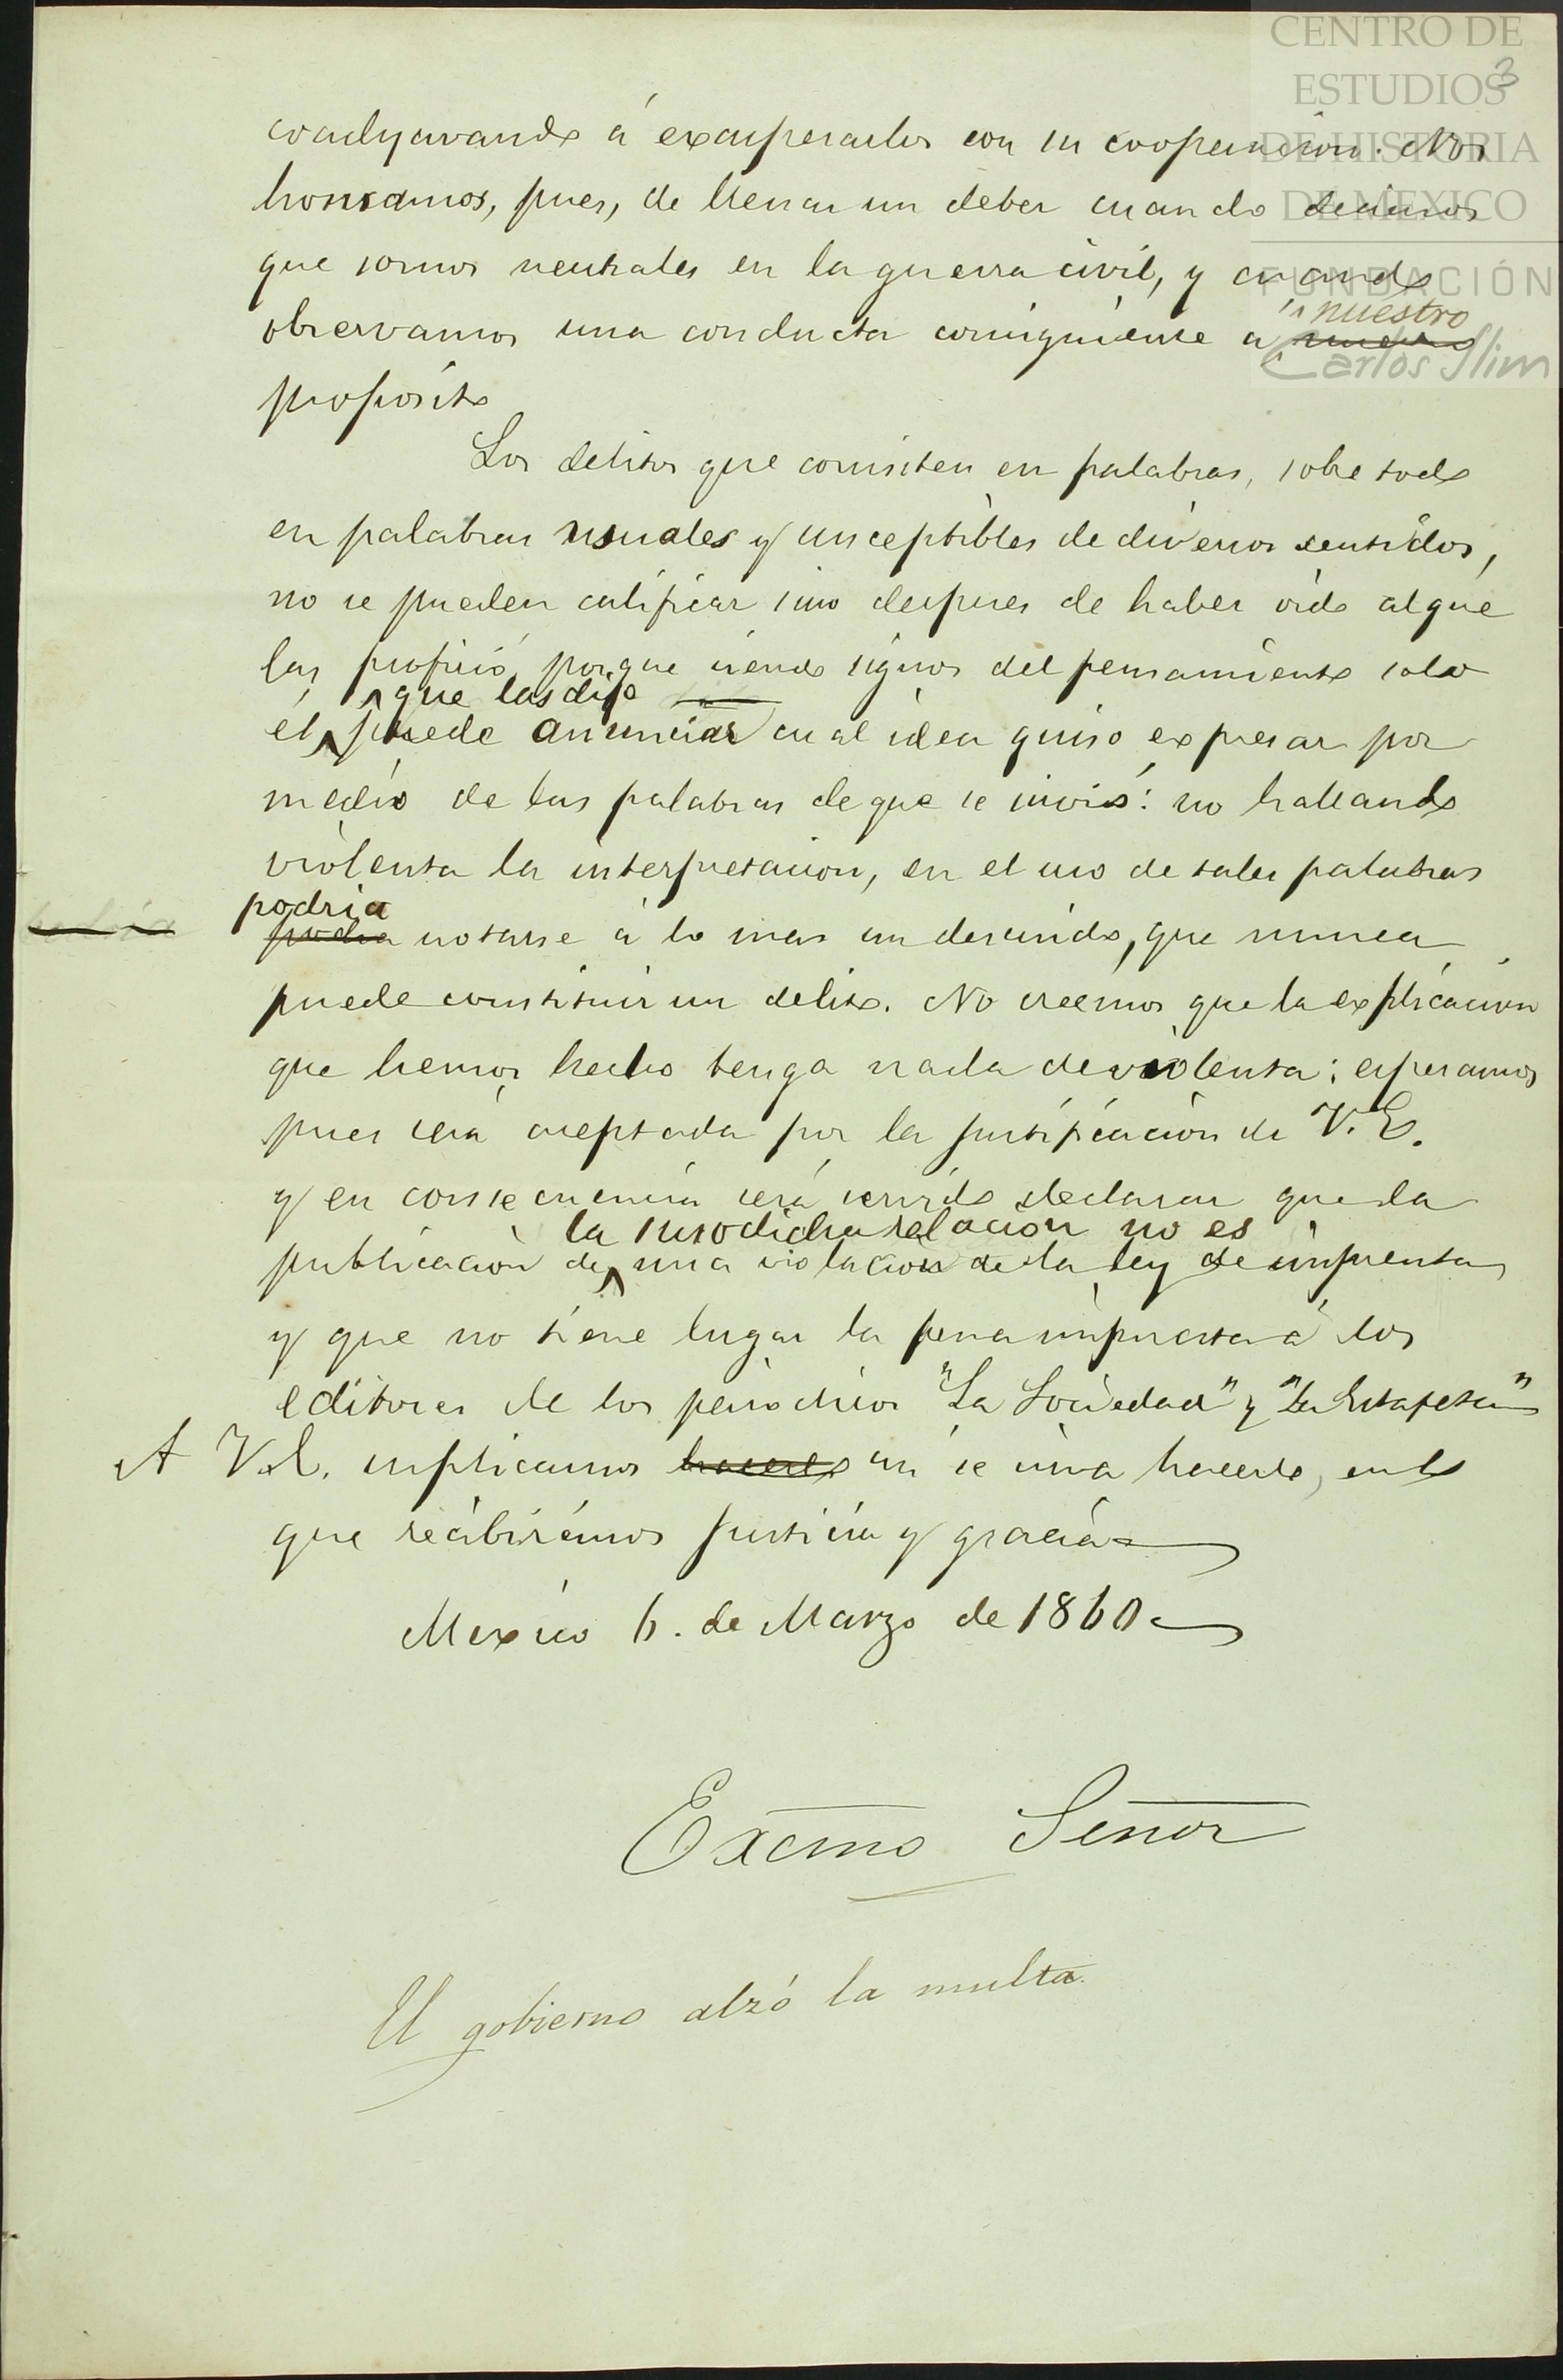 CENTRO DE
ESTUDIOS
DE HISTORIA
DE MEXICO
FUNDACIÓN
Carlos Slim
3
coadyuvando á exasperarlos con su cooperacion. Nos
honramos, pues, de llenar un deber cuando decimos
que somos neutrales en la guerra civil, y cuando
observamos una conducta consiguiente a nuestro
proposito
Los delitos que consisten en palabras, sobre todo
en palabras usuales y susceptibles de diversos sentidos,
no se pueden calificar sino despues de haber oido al que
las profirió, porque siendo signos del pensamiento solo
él que las dijo puede anunciar cual idea quiso expresar por
medio de las palabras de que se sirvió: no hallando
violenta la interpretacion, en el uso de tales palabras
podria notarse á lo mas un descuido, que nunca
puede constituir un delito. No creemos que la explicacion
que hemos hecho tenga nada de violenta; esperamos
pues será aceptada por la justificacion de V. E.
y en consecuencia será servido declarar que la
publicacion de la susodicha relacion no es una violacion de la ley de imprenta
y que no tiene lugar la pena impuesta á los
editores de los periodicos "La Sociedad" y "La Estafeta"
A V. E. suplicamos asi se sirva hacerlo, en lo
que recibirémos justicia y gracia
Mexico 6. de Marzo de 1860
Excmo Señor
El gobierno alzó la multa.